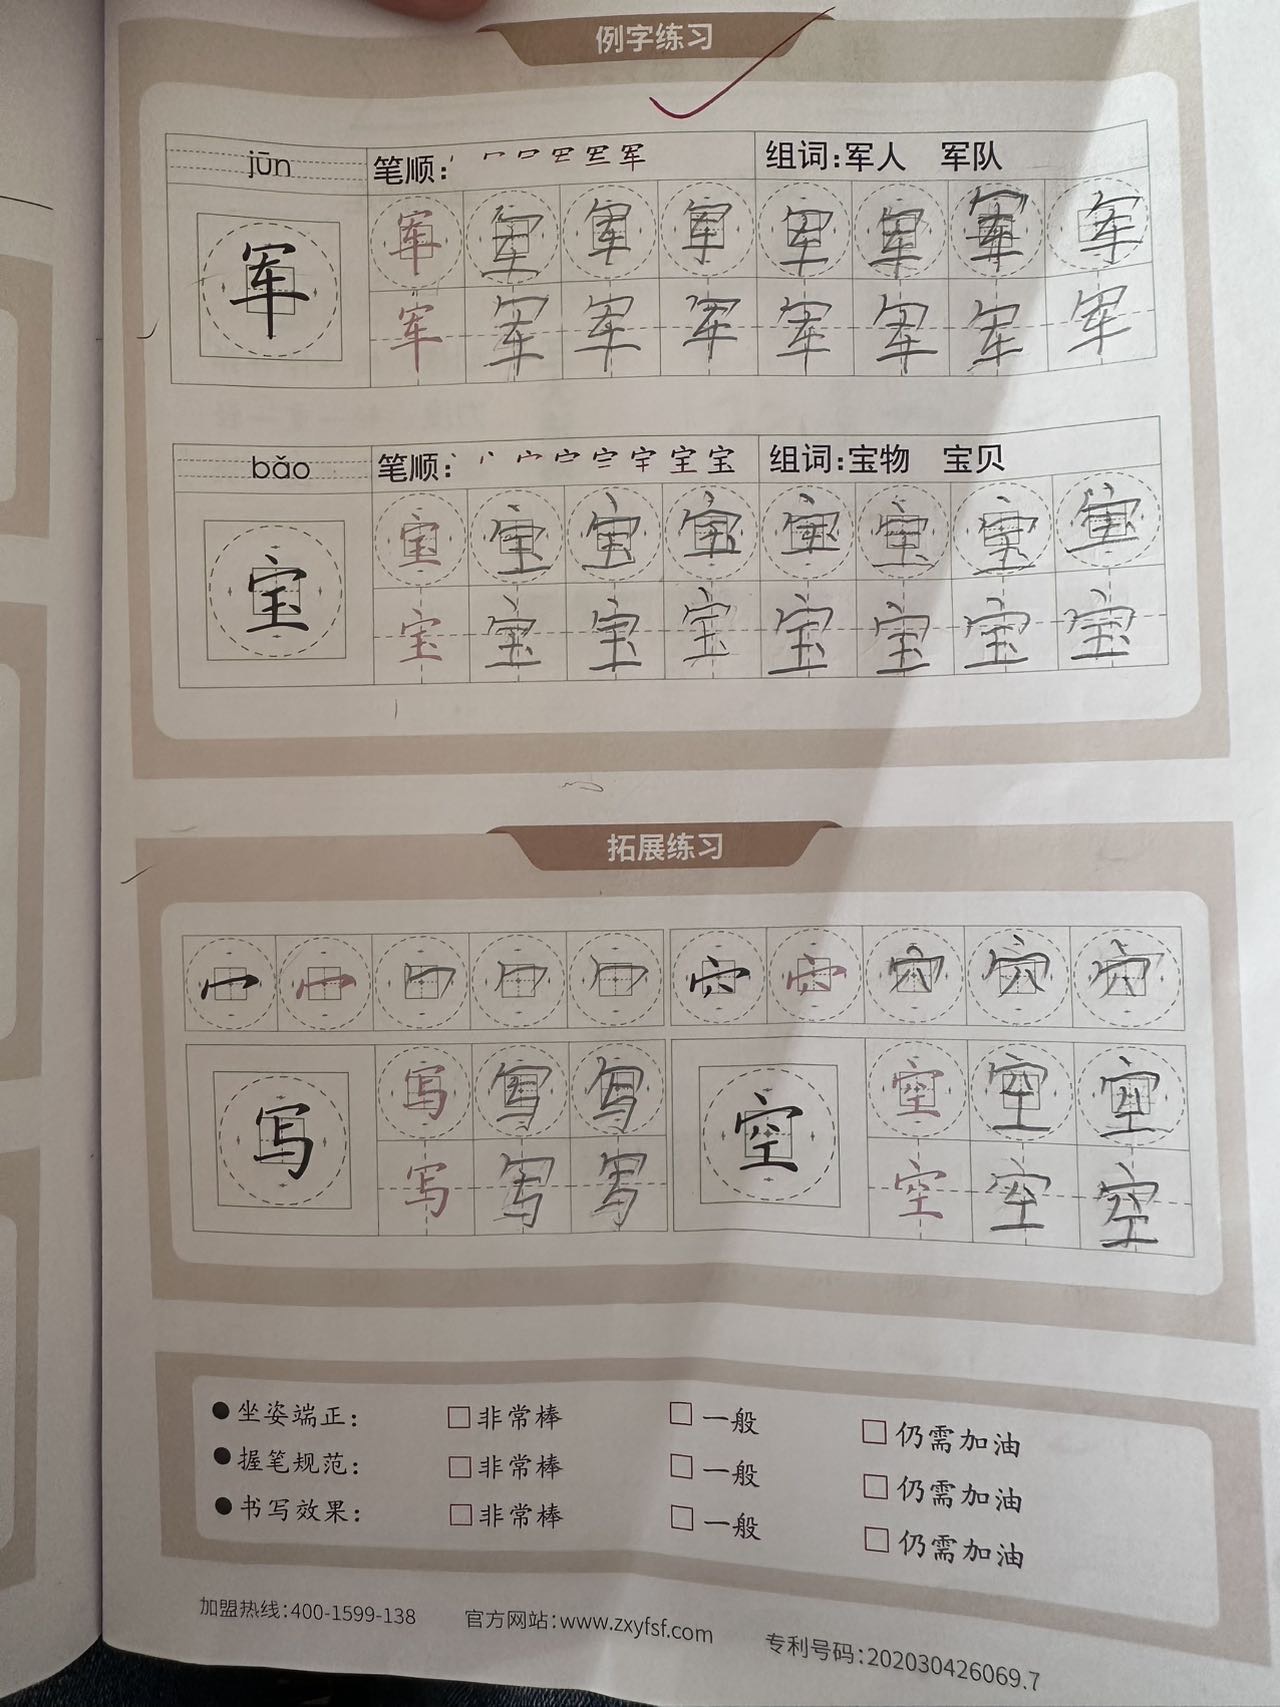 例字练习
jūn 笔顺: 组词:军人 军队
军 军 军 军 军 军 军 军 军
军 军 军 军 军 军 军 军
bǎo 笔顺: 组词:宝物 宝贝
宝 宝 宝 宝 宝 宝 宝 宝 宝
宝 宝 宝 宝 宝 宝 宝 宝
拓展练习
冖 冖 冖 冖 冖 穴 穴 穴 穴 穴
写 写 写 写 空 空 空 空
写 写 写 空 空 空
●坐姿端正: □非常棒 □一般 □仍需加油
●握笔规范: □非常棒 □一般 □仍需加油
●书写效果: □非常棒 □一般 □仍需加油
加盟热线:400-1599-138 官方网站:www.zxyfsf.com 专利号码:202030426069.7